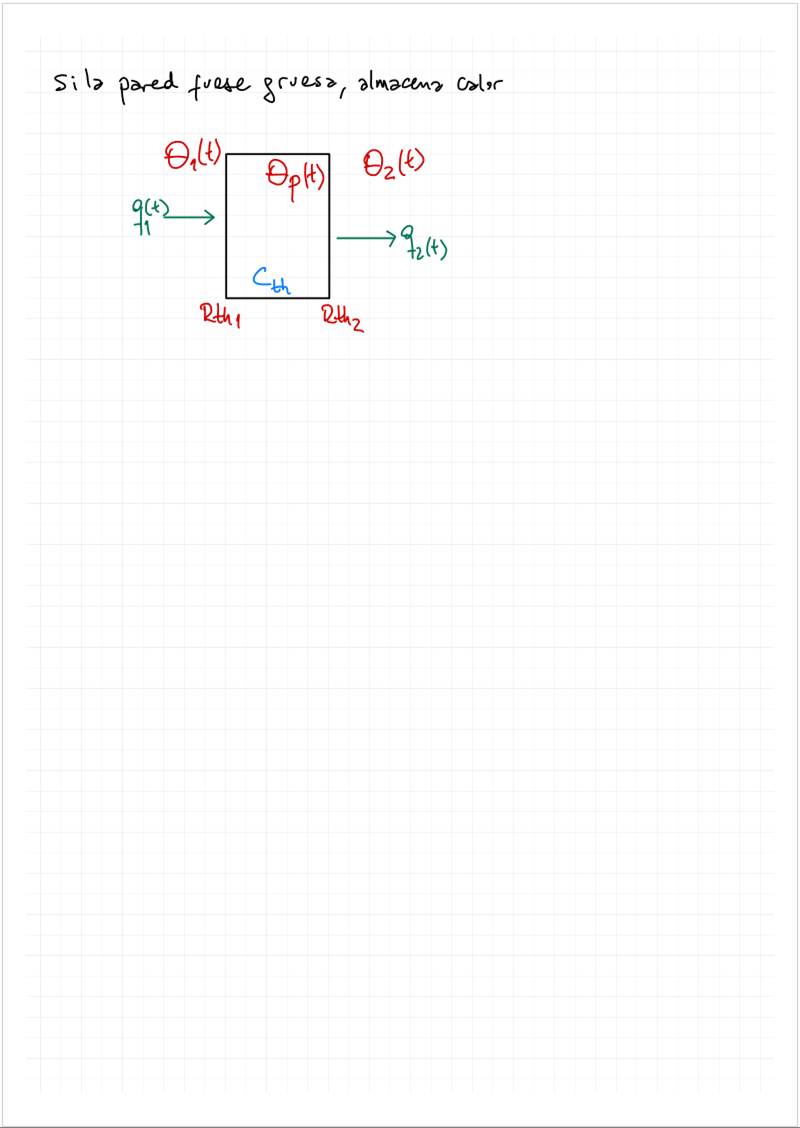 Si la pared fuese gruesa, almacena calor
θ₁(t)
θp(t)
θ₂(t)
q₁(t)
q₂(t)
Cth
Rth₁
Rth₂